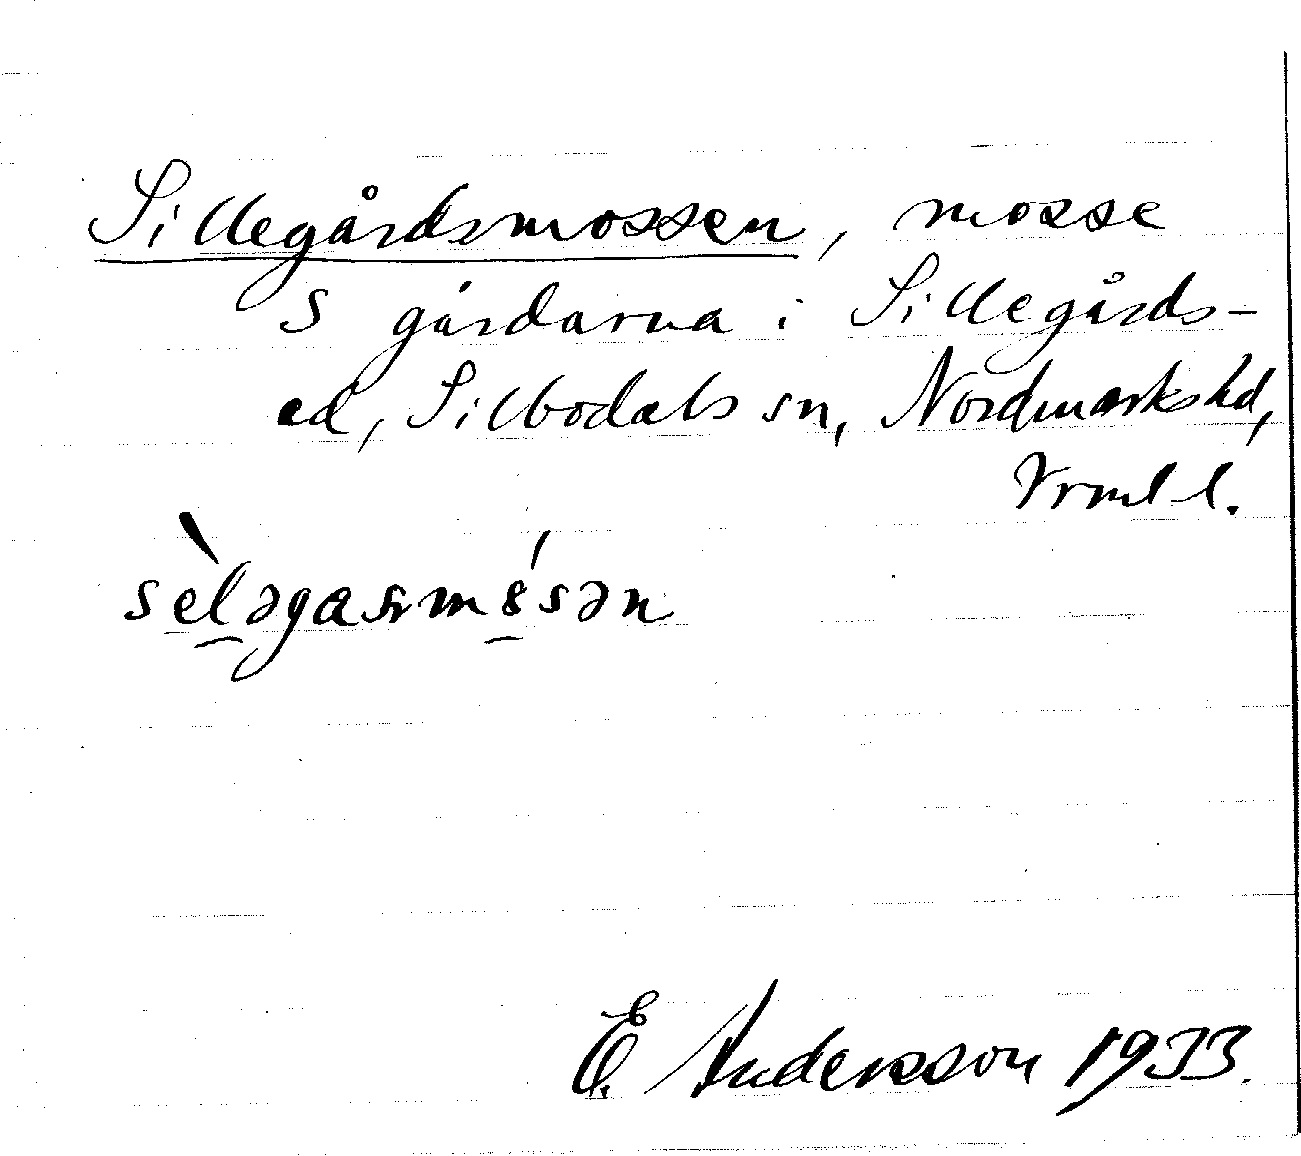 Sillegårdsmossen, mosse
S gårdarna i Sillegårds-
ed, Silbodals sn, Nordmarks hd,
Vrml l.
sèləgasrmósən
E. Andersson 1933.